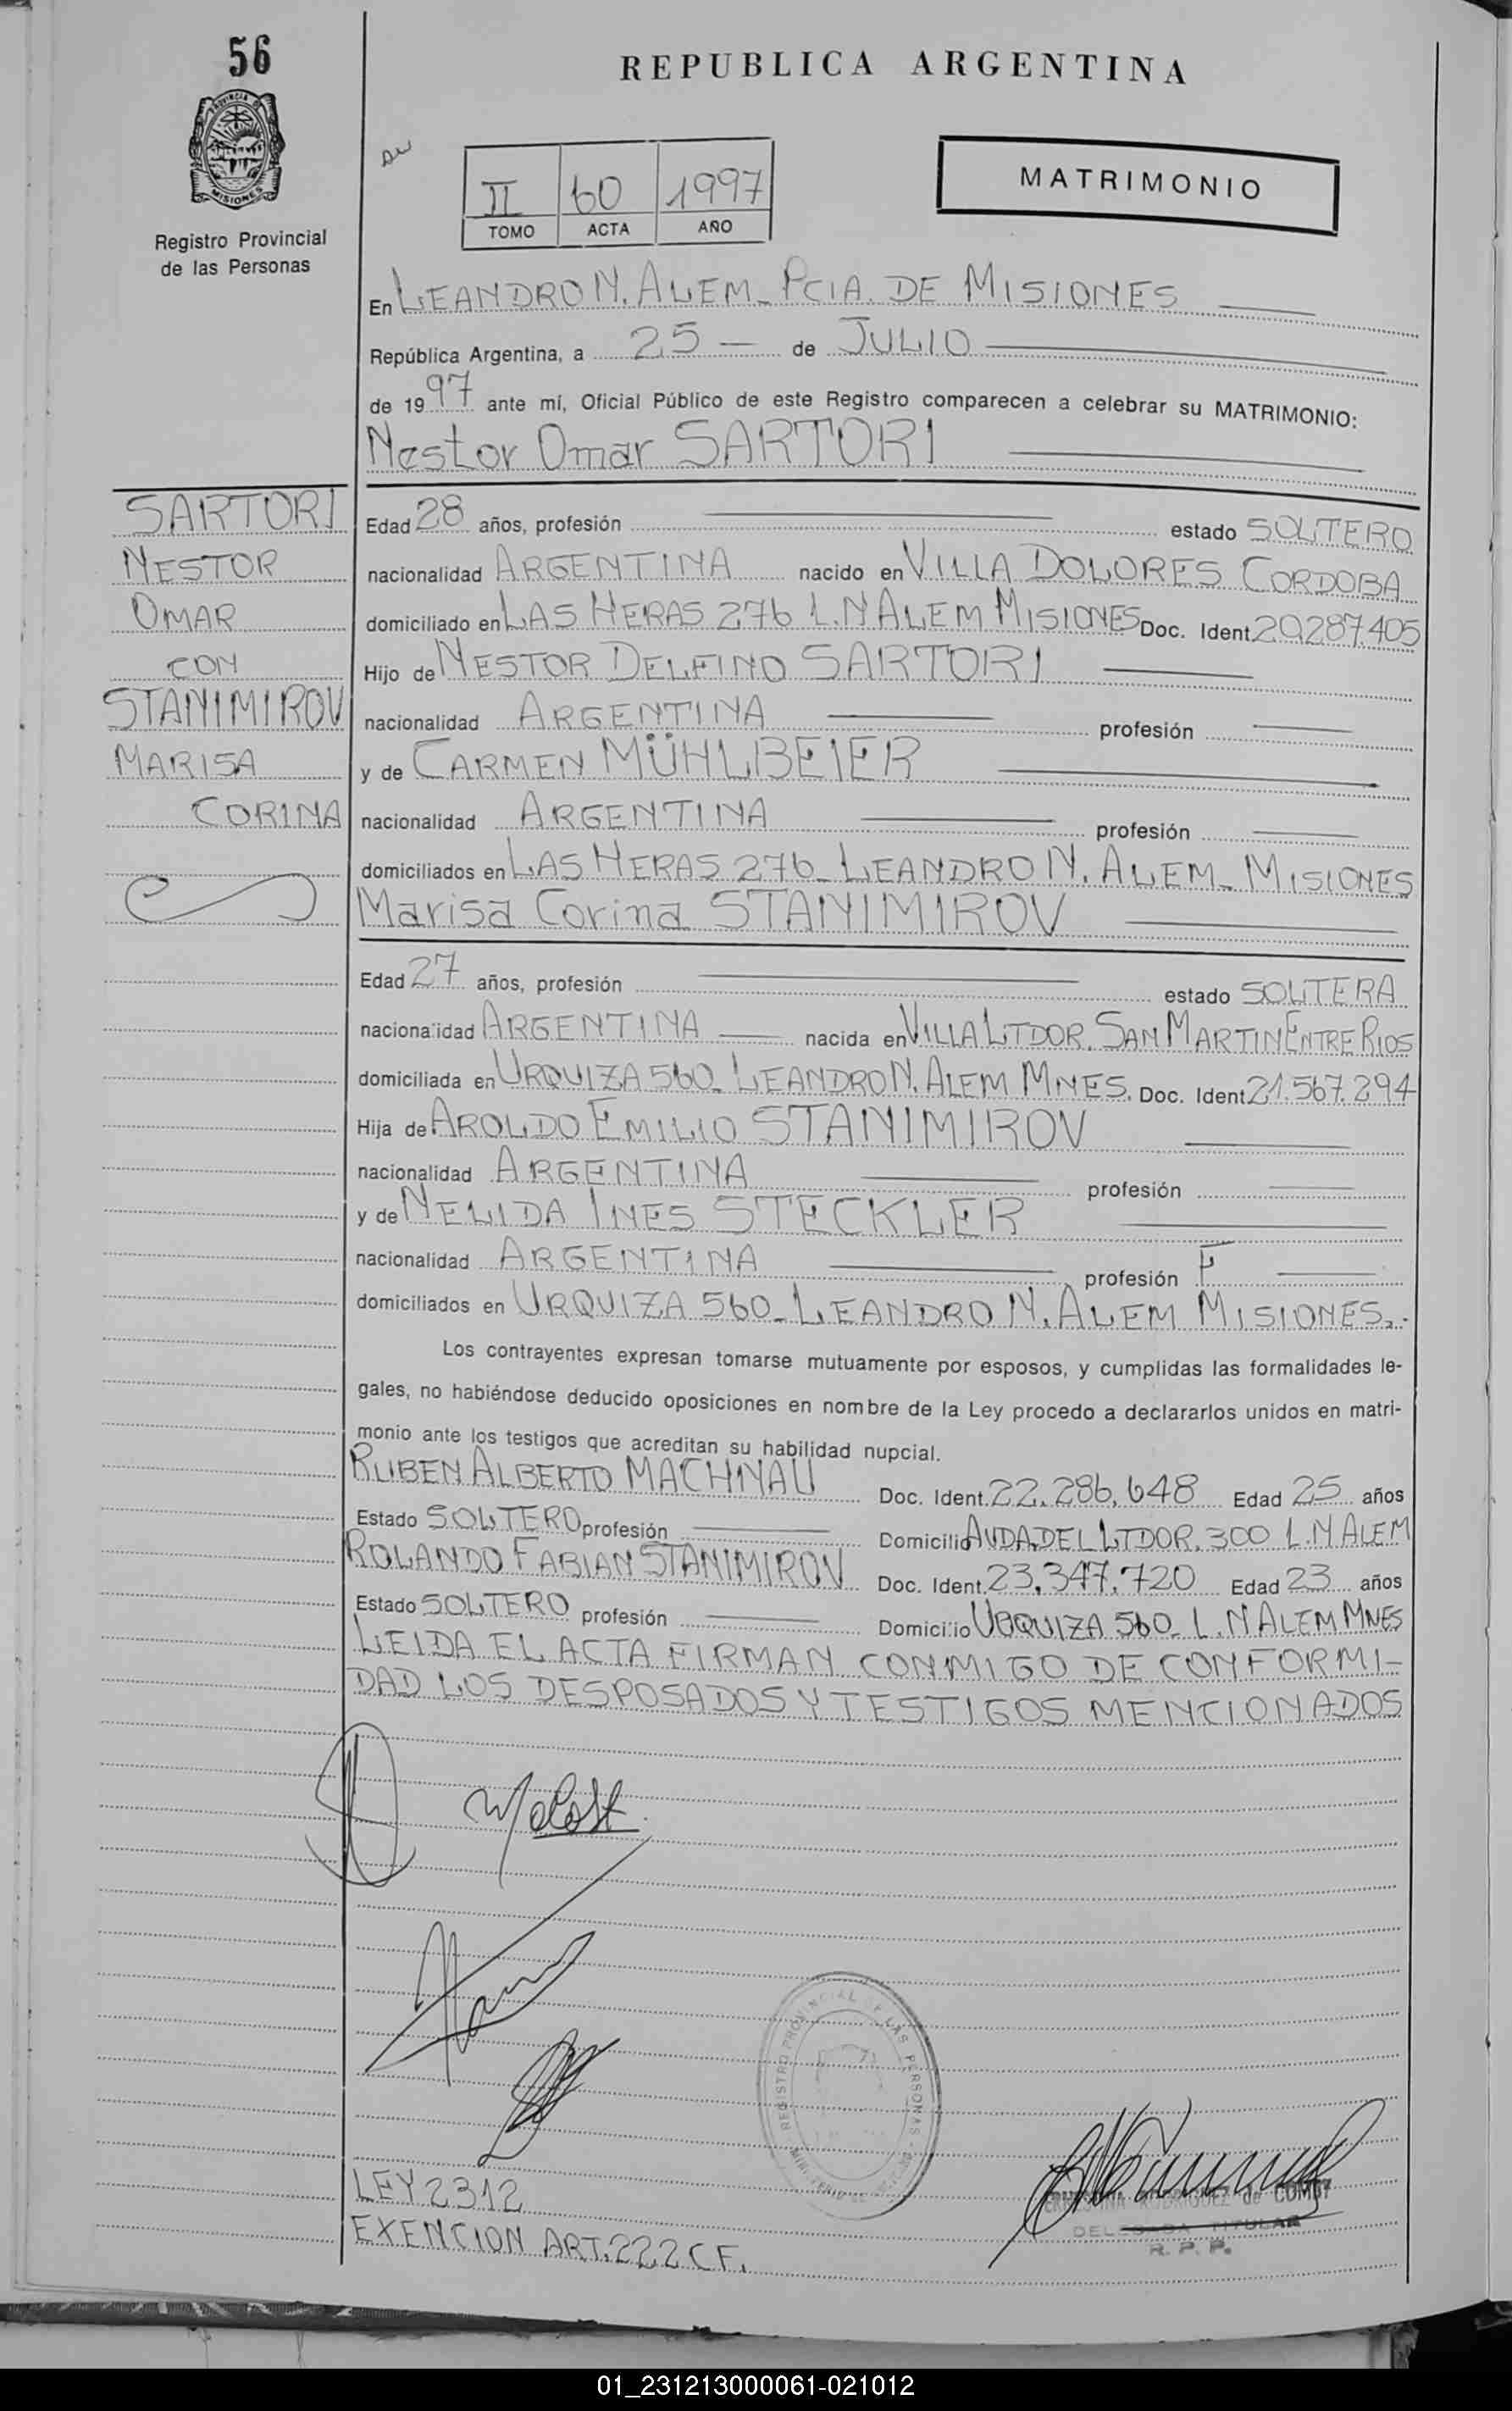 56
REPUBLICA ARGENTINA
PROVINCIA DE
MISIONES
Registro Provincial
de las Personas
II 60 1997
TOMO ACTA AÑO
MATRIMONIO
En LEANDRO N. ALEM_ PCIA. DE MISIONES
República Argentina, a 25 — de JULIO
de 1997 ante mí, Oficial Público de este Registro comparecen a celebrar su MATRIMONIO:
Nestor Omar SARTORI
SARTORI
NESTOR
OMAR
CON
STANIMIROV
MARISA
CORINA
Edad 28 años, profesión estado SOLTERO
nacionalidad ARGENTINA nacido en VILLA DOLORES CORDOBA
domiciliado en LAS HERAS 276 L.N ALEM MISIONES Doc. Ident. 20.287.405
Hijo de NESTOR DELFINO SARTORI
nacionalidad ARGENTINA profesión
y de CARMEN MÜHLBEIER
nacionalidad ARGENTINA profesión
domiciliados en LAS HERAS 276_ LEANDRO N. ALEM_ MISIONES
Marisa Corina STANIMIROV
Edad 27 años, profesión estado SOLTERA
nacionalidad ARGENTINA nacida en VILLA LTDOR. SAN MARTIN ENTRE RIOS
domiciliada en URQUIZA 560_ LEANDRO N. ALEM MNES. Doc. Ident. 21.567.294
Hija de AROLDO EMILIO STANIMIROV
nacionalidad ARGENTINA profesión
y de NELIDA INES STECKLER
nacionalidad ARGENTINA profesión F
domiciliados en URQUIZA 560_ LEANDRO N. ALEM MISIONES.-
Los contrayentes expresan tomarse mutuamente por esposos, y cumplidas las formalidades le-
gales, no habiéndose deducido oposiciones en nombre de la Ley procedo a declararlos unidos en matri-
monio ante los testigos que acreditan su habilidad nupcial.
RUBEN ALBERTO MACHNAU Doc. Ident. 22.286.648 Edad 25 años
Estado SOLTERO profesión Domicilio AVDA.DEL LTDOR. 300 L.N ALEM
ROLANDO FABIAN STANIMIROV Doc. Ident. 23.347.720 Edad 23 años
Estado SOLTERO profesión Domicilio URQUIZA 560_ L.N ALEM MNES
LEIDA EL ACTA FIRMAN CONMIGO DE CONFORMI-
DAD LOS DESPOSADOS Y TESTIGOS MENCIONADOS
REGISTRO PROVINCIAL DE LAS PERSONAS
RODRIGUEZ de
DELEGADA TITULAR
R. P. P.
LEY 2312
EXENCION ART. 222 C F.
01_231213000061-021012